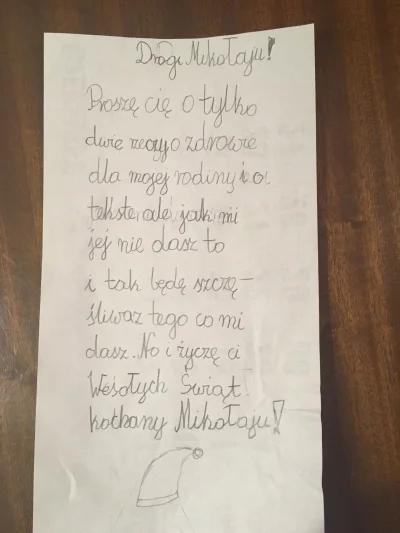 Drogi Mikołaju!
Proszę cię o tylko
dwie rzeczy o zdrowie
dla mojej rodziny i o
tekste, ale jak mi
jej nie dasz to
i tak będę szczę-
śliwa z tego co mi
dasz. No i życzę ci
Wesołych Świąt
kochany Mikołaju!